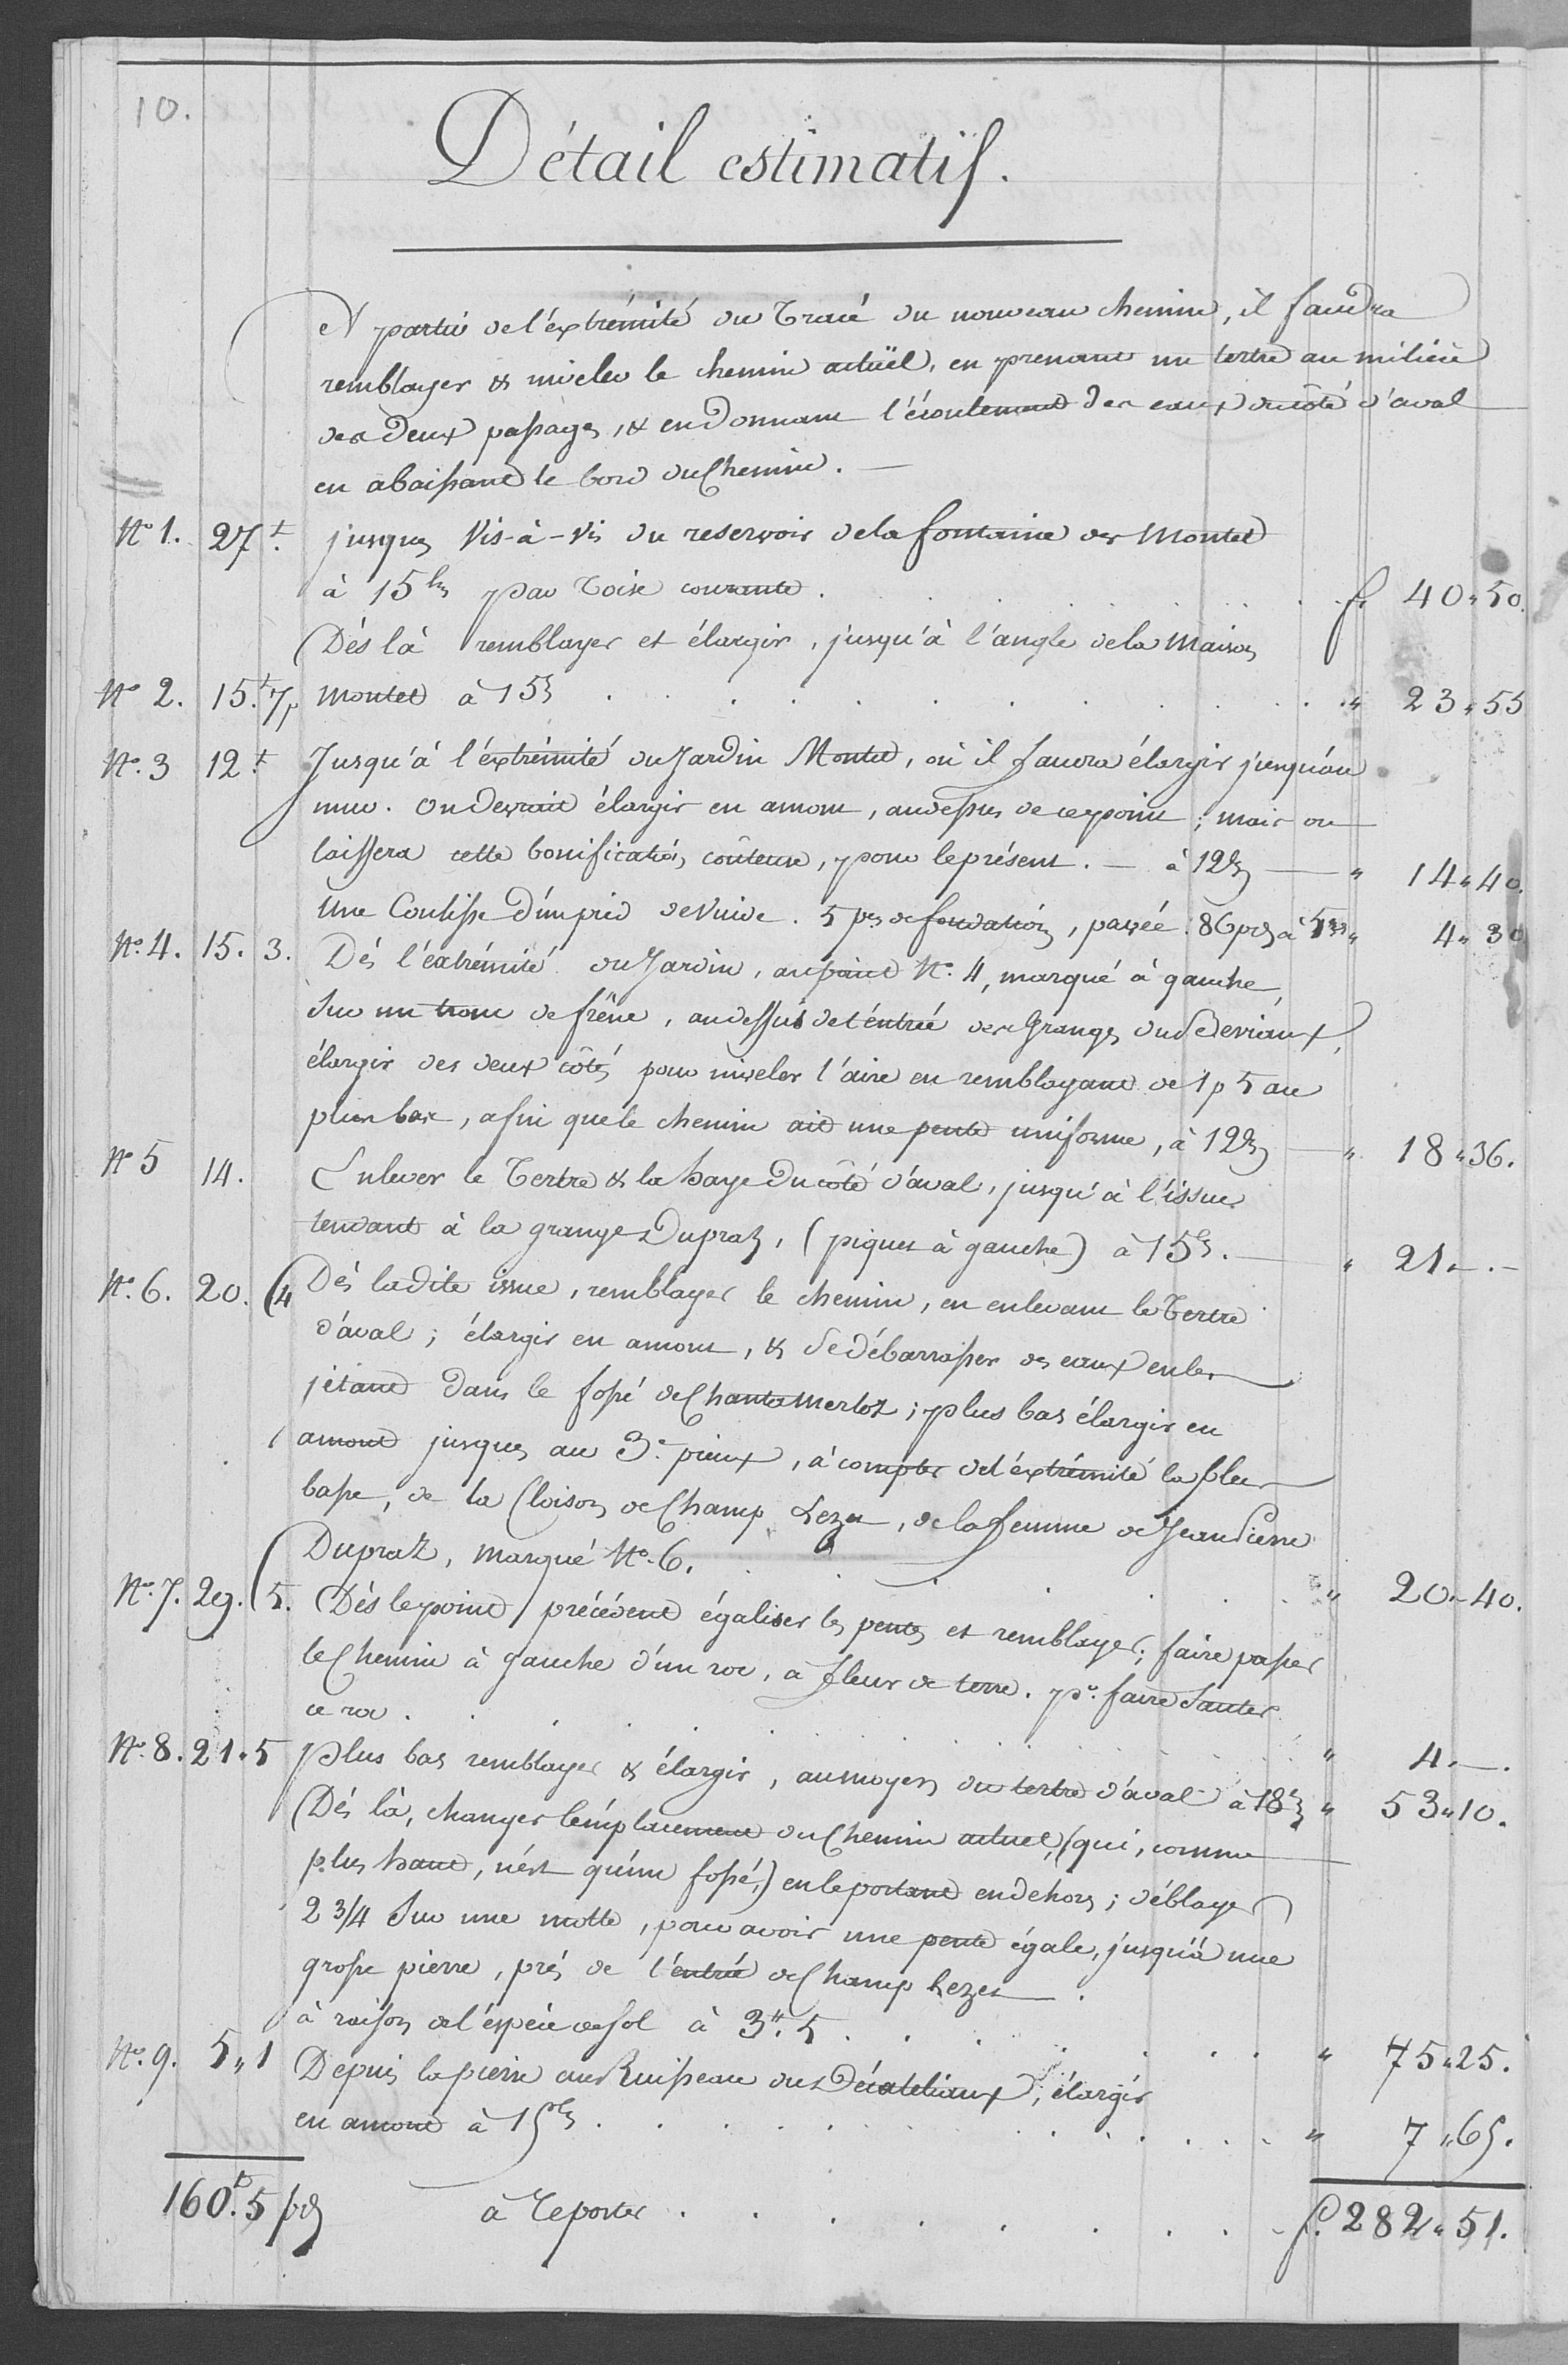 10.
Détail estimatif.
A partir de l'extrémité du Tracé du nouveau chemin, il faudra
remblayer & niveler le chemin actuël, en prenant un tertre au milieu
des deux passages, & en donnant l'écoulement des eaux du côté d'aval
en abaissant le bord du Chemin. —
No 1. 27t. jusques Vis-à-Vis du reservoir de la fontaine des Montet
à 15bz par Toise courante . . . . . . . . f. 40 " 50.
Dès là remblayer et élargir, jusqu'à l'angle de la Maison
No 2. 15t. 7p Montet à 15bz . . . . . . . . . . " 23 " 55
No. 3 12t Jusqu'à l'extrémité du Jardin Montet, où il faudra élargir jusqu'au
mur. On devrait élargir en amont, au dessus de ce point ; mais on
laissera cette bonification coûteuse, pour le présent. — à 12bz — " 14 " 40.
Une Coulisse d'un pied de vuide. 5 pds de fondation, pavée. 86 pds à 5rs " 4 " 30
No. 4. 15. 3. Dès l'extrémité du Jardin, au point No. 4, marqué à gauche,
sur un tronc de frêne, au dessus de l'entrée des Granges du Devriaux,
élargir des deux côtés pour niveler l'aire en remblayant de 1p 5 au
plus bas, afin que le chemin ait une pente uniforme, à 12bz — " 18 " 36.
No 5 14. Enlever le Tertre & la haye du côté d'aval, jusqu'à l'issue
tendant à la grange Dupraz, (piquet à gauche) à 15bz. — " 21 " . —
No. 6. 20. 4 Dès la dite issue, remblayer le chemin, en enlevant le Tertre
d'aval ; élargir en amont, & se débarrasser des eaux en les
jetant dans le fossé de Chantemerloz ; plus bas élargir en
amont jusques au 3e pieux, à compter de l'extrémité la plus
basse, de la Cloison de Champ Lezer, de la femme de Jean Pierre
Dupraz, marqué No. 6. . . . . . . " 20 " 40.
No. 7. 29. 5. Dès le point précédent égaliser les pentes et remblayer ; faire passer
le Chemin à gauche d'un roc, à fleur de terre. pr. faire Sauter
ce roc . . . . . . . . . . " 4. —.
No. 8. 21. 5 Plus bas remblayer & élargir, au moyen du tertre d'aval à 18bz " 53 " 10.
Dès là, changer l'emplacement du Chemin actuel, (qui, comme
plus haut, n'est qu'un fossé,) en le portant en dehors ; déblayer
2 3/4 sur une motte, pour avoir une pente égale, jusqu'à une
grosse pierre, près de l'entrée de Champ Lezer .
à raison de l'espèce de sol à 3 ". 5 . . . . . . " 75 " 25.
No. 9. 5 " 1 Depuis la pierre au Ruisseau des , élargir
en amont à 15bz . . . . . . . . . " 7 " 65.
160t. 5 pds à reporter . . . . . . . . f. 282 " 51.